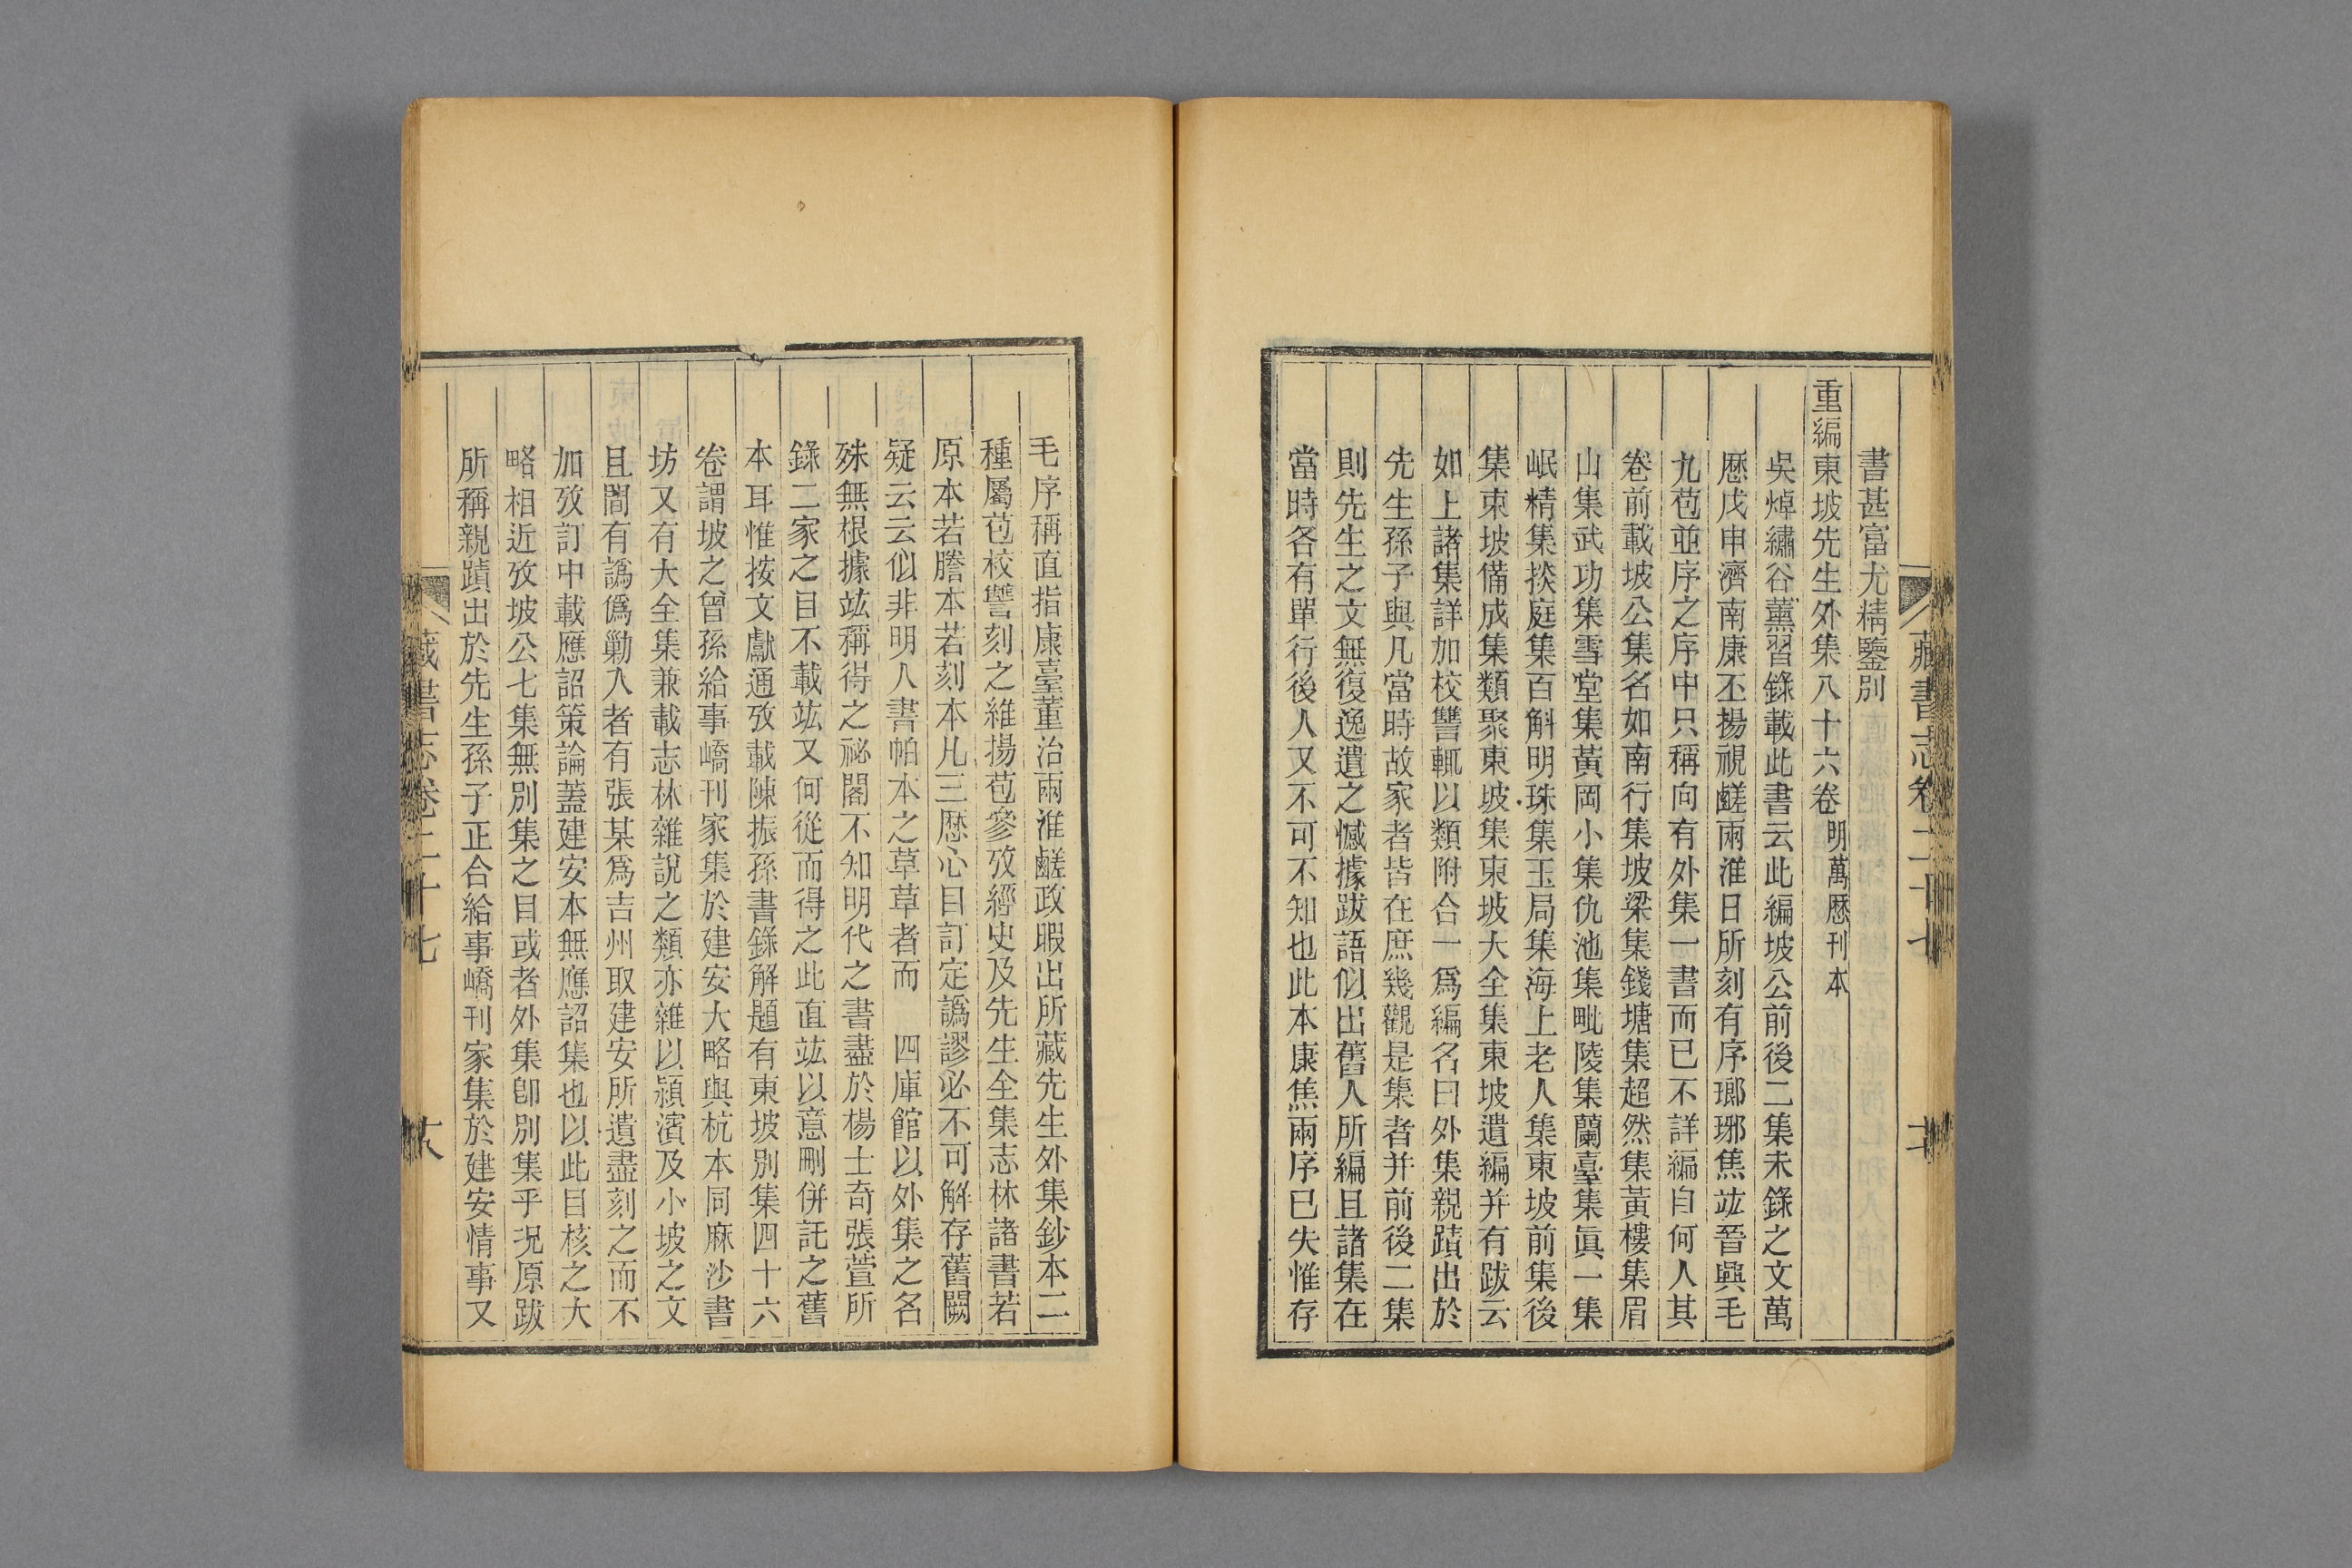 書甚富尤精鑒別
重編東坡先生外集八十六卷 明萬歷刊本
吳焯繡谷薰習錄載此書云此編坡公前後二集未錄之文萬
歷戊申濟南康丕揚視鹺兩淮日所刻有序瑯琊焦竑晉興毛
九苞並序之序中只稱向有外集一書而已不詳編自何人其
卷前載坡公集名如南行集坡梁集錢塘集超然集黃樓集眉
山集武功集雪堂集黃岡小集仇池集毗陵集蘭臺集眞一集
岷精集掞庭集百斛明珠集玉局集海上老人集東坡前集後
集東坡備成集類聚東坡集東坡大全集東坡遺編并有跋云
如上諸集詳加校讐輒以類附合一爲編名曰外集親蹟出於
先生孫子與凡當時故家者皆在庶幾觀是集者并前後二集
則先生之文無復逸遺之憾據跋語似出舊人所編且諸集在
當時各有單行後人又不可不知也此本康焦兩序已失惟存
毛序稱直指康臺董治兩淮鹺政暇出所藏先生外集鈔本二
種屬苞校讐刻之維揚苞參攷經史及先生全集志林諸書若
原本若謄本若刻本凡三歷心目訂定譌謬必不可解存舊闕
疑云云似非明人書帕本之草草者而 四庫館以外集之名
殊無根據竑稱得之祕閣不知明代之書盡於楊士奇張萱所
錄二家之目不載竑又何從而得之此直竑以意刪併託之舊
本耳惟按文獻通攷載陳振孫書錄解題有東坡別集四十六
卷謂坡之曾孫給事嶠刊家集於建安大略與杭本同麻沙書
坊又有大全集兼載志林雜說之類亦雜以潁濱及小坡之文
且閒有譌僞勦入者有張某爲吉州取建安所遺盡刻之而不
加攷訂中載應詔策論蓋建安本無應詔集也以此目核之大
略相近攷坡公七集無別集之目或者外集卽別集乎況原跋
所稱親蹟出於先生孫子正合給事嶠刊家集於建安情事又
藏書志卷二十七